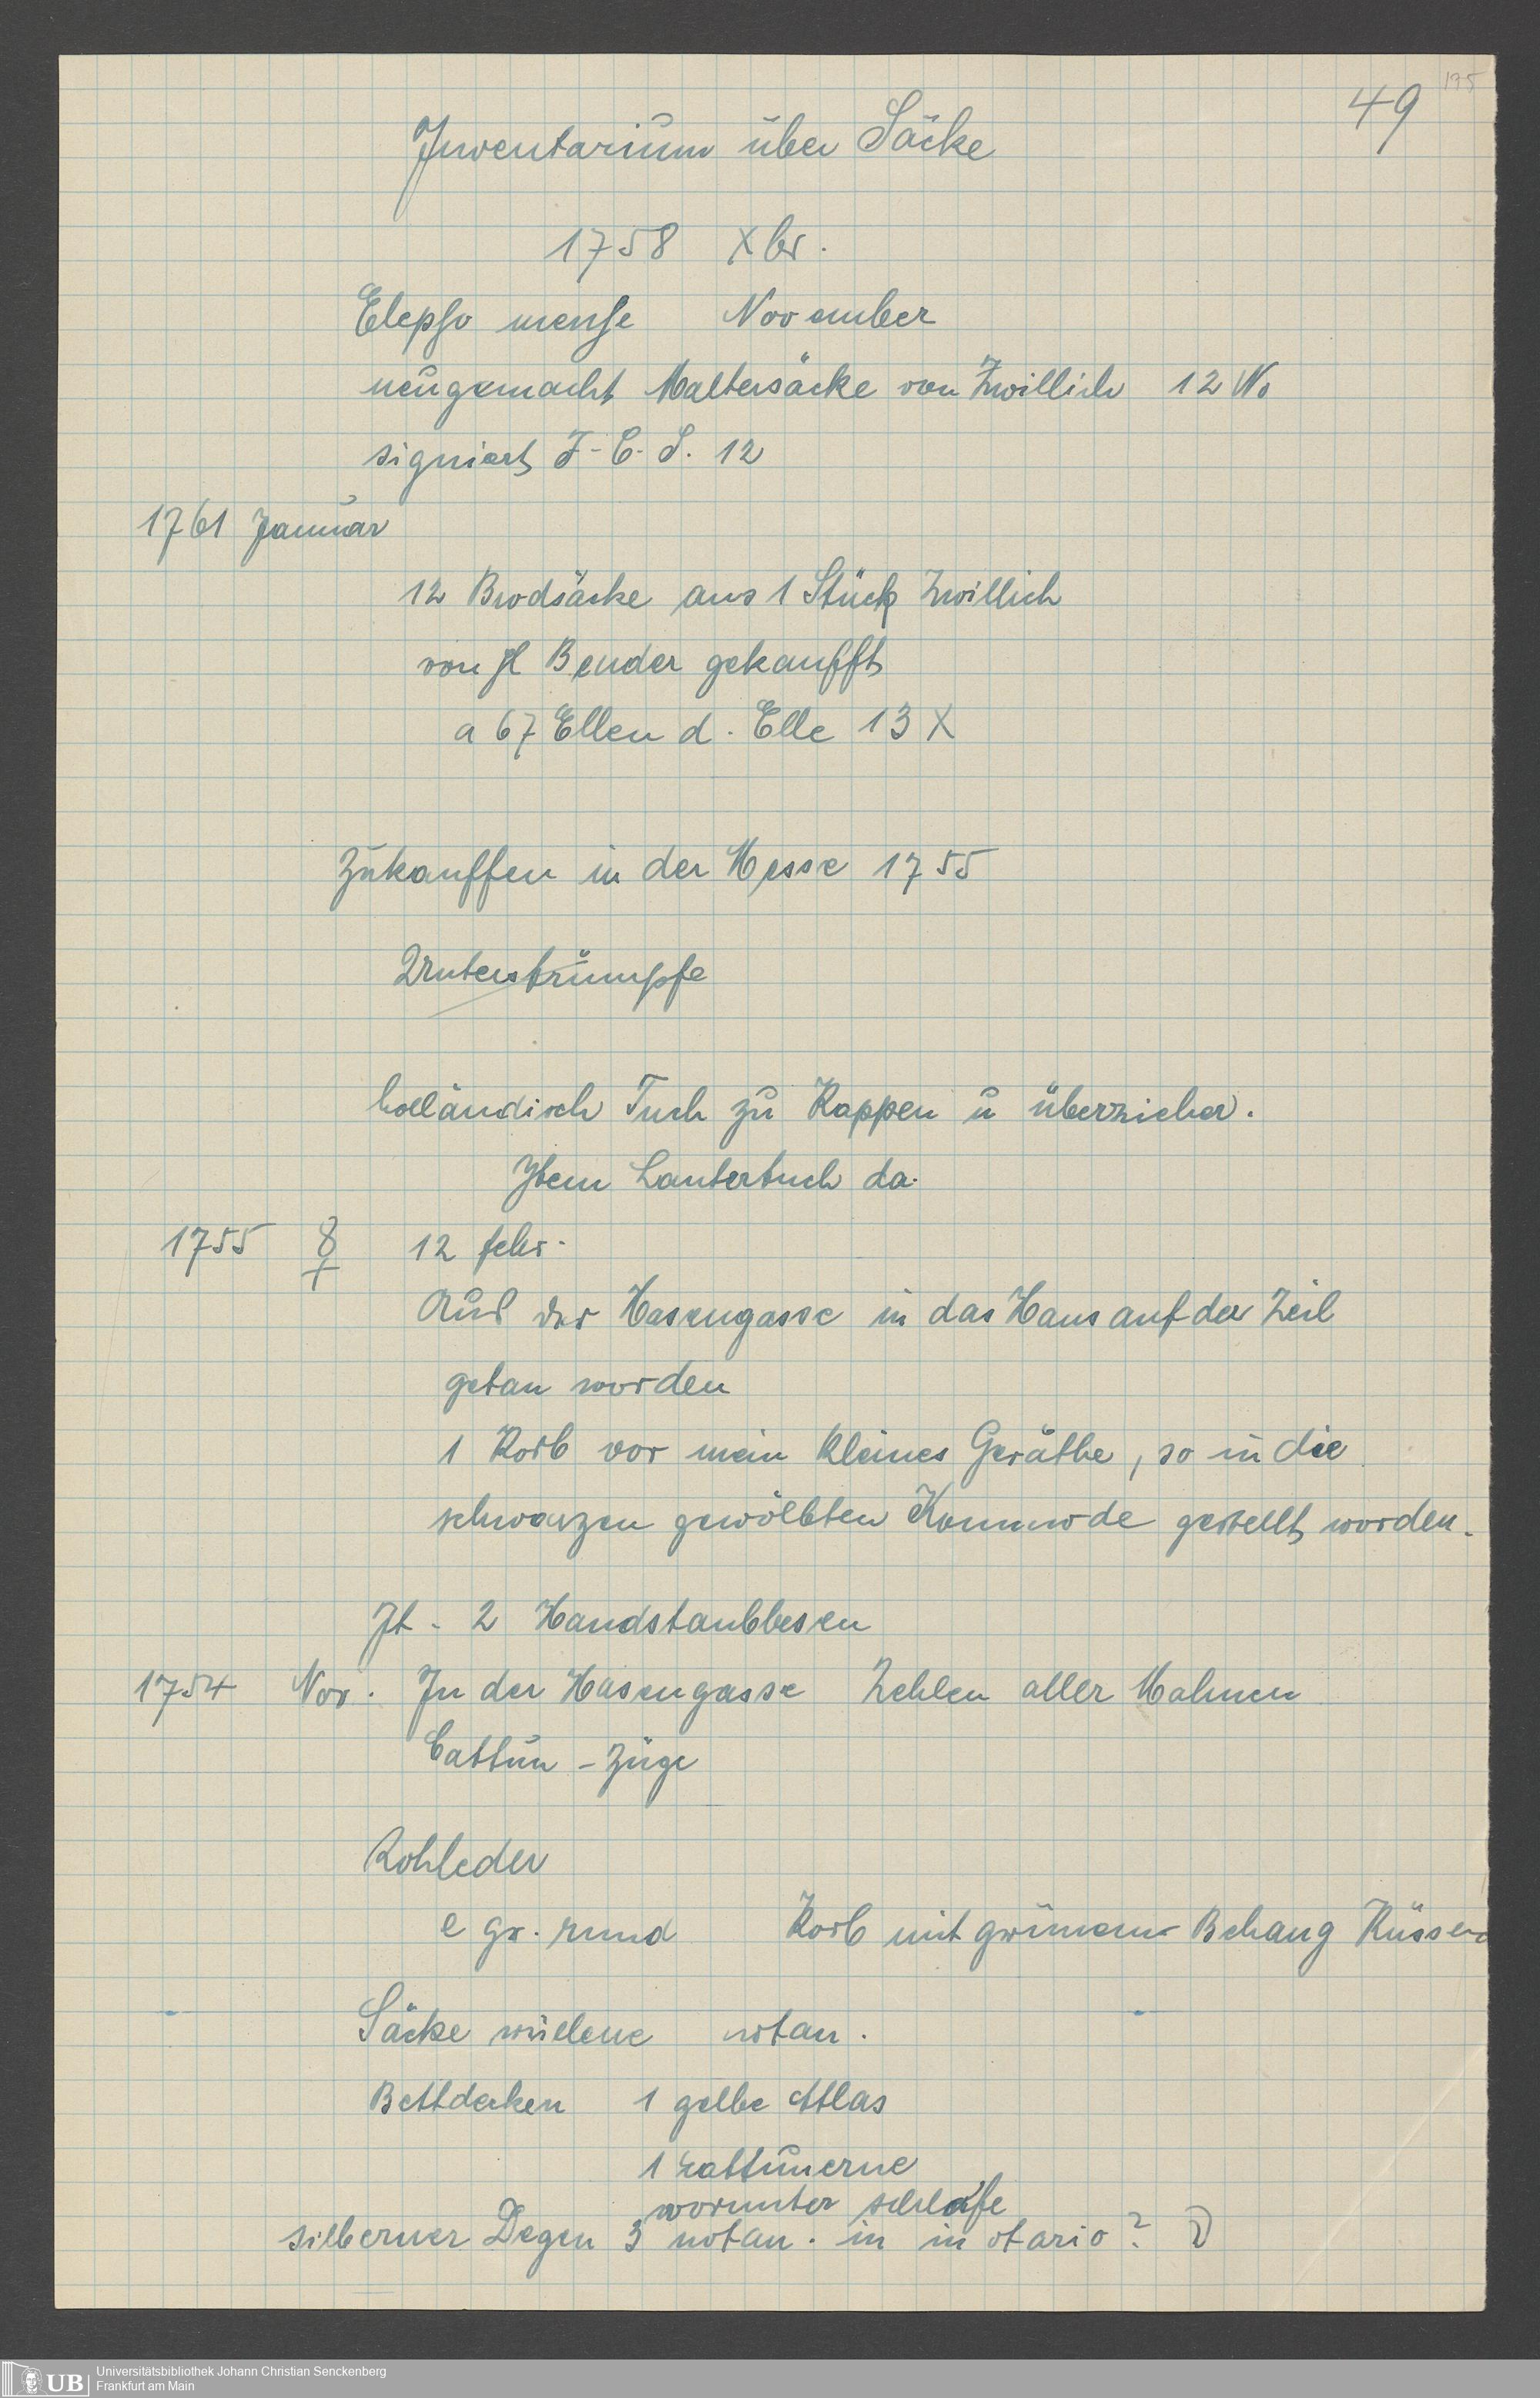 49
175
Inventarium über Säcke
1758 Xbr.
Elepso mense November
neugemacht Maltersäcke von Zwillich 12 No
signiert J.C.S. 12
1761 Januar
12 Brodsäcke aus 1 Stück Zwillich
von H Bender gekaufft
a 67 Ellen d. Elle 13 X
Zukauffen in der Messe 1755
Unterstrümpfe
holländisch Tuch zu Kappen u überzieher.
Item Lauterbuch da.
1755 ☿ 12 febr.
Aus der Hasengasse in das Haus auf der Zeil
getan worden
1 Korb vor mein kleines Geräthe, so in die
schwarzen gewölbten Kommode gestellt worden.
It. 2 Handstaubbesen
1754 Nov. In der Hasengasse Zehlen aller Mahnen
Cattun-Züge
Rohleder
e gr. rund Korb mit grünem Behang Küssen
Säcke wüllene notan.
Bettdecken 1 gelbe Atlas
1 cattunerne
worunter schlafe
silberner Degen 3 notan. in in otario?